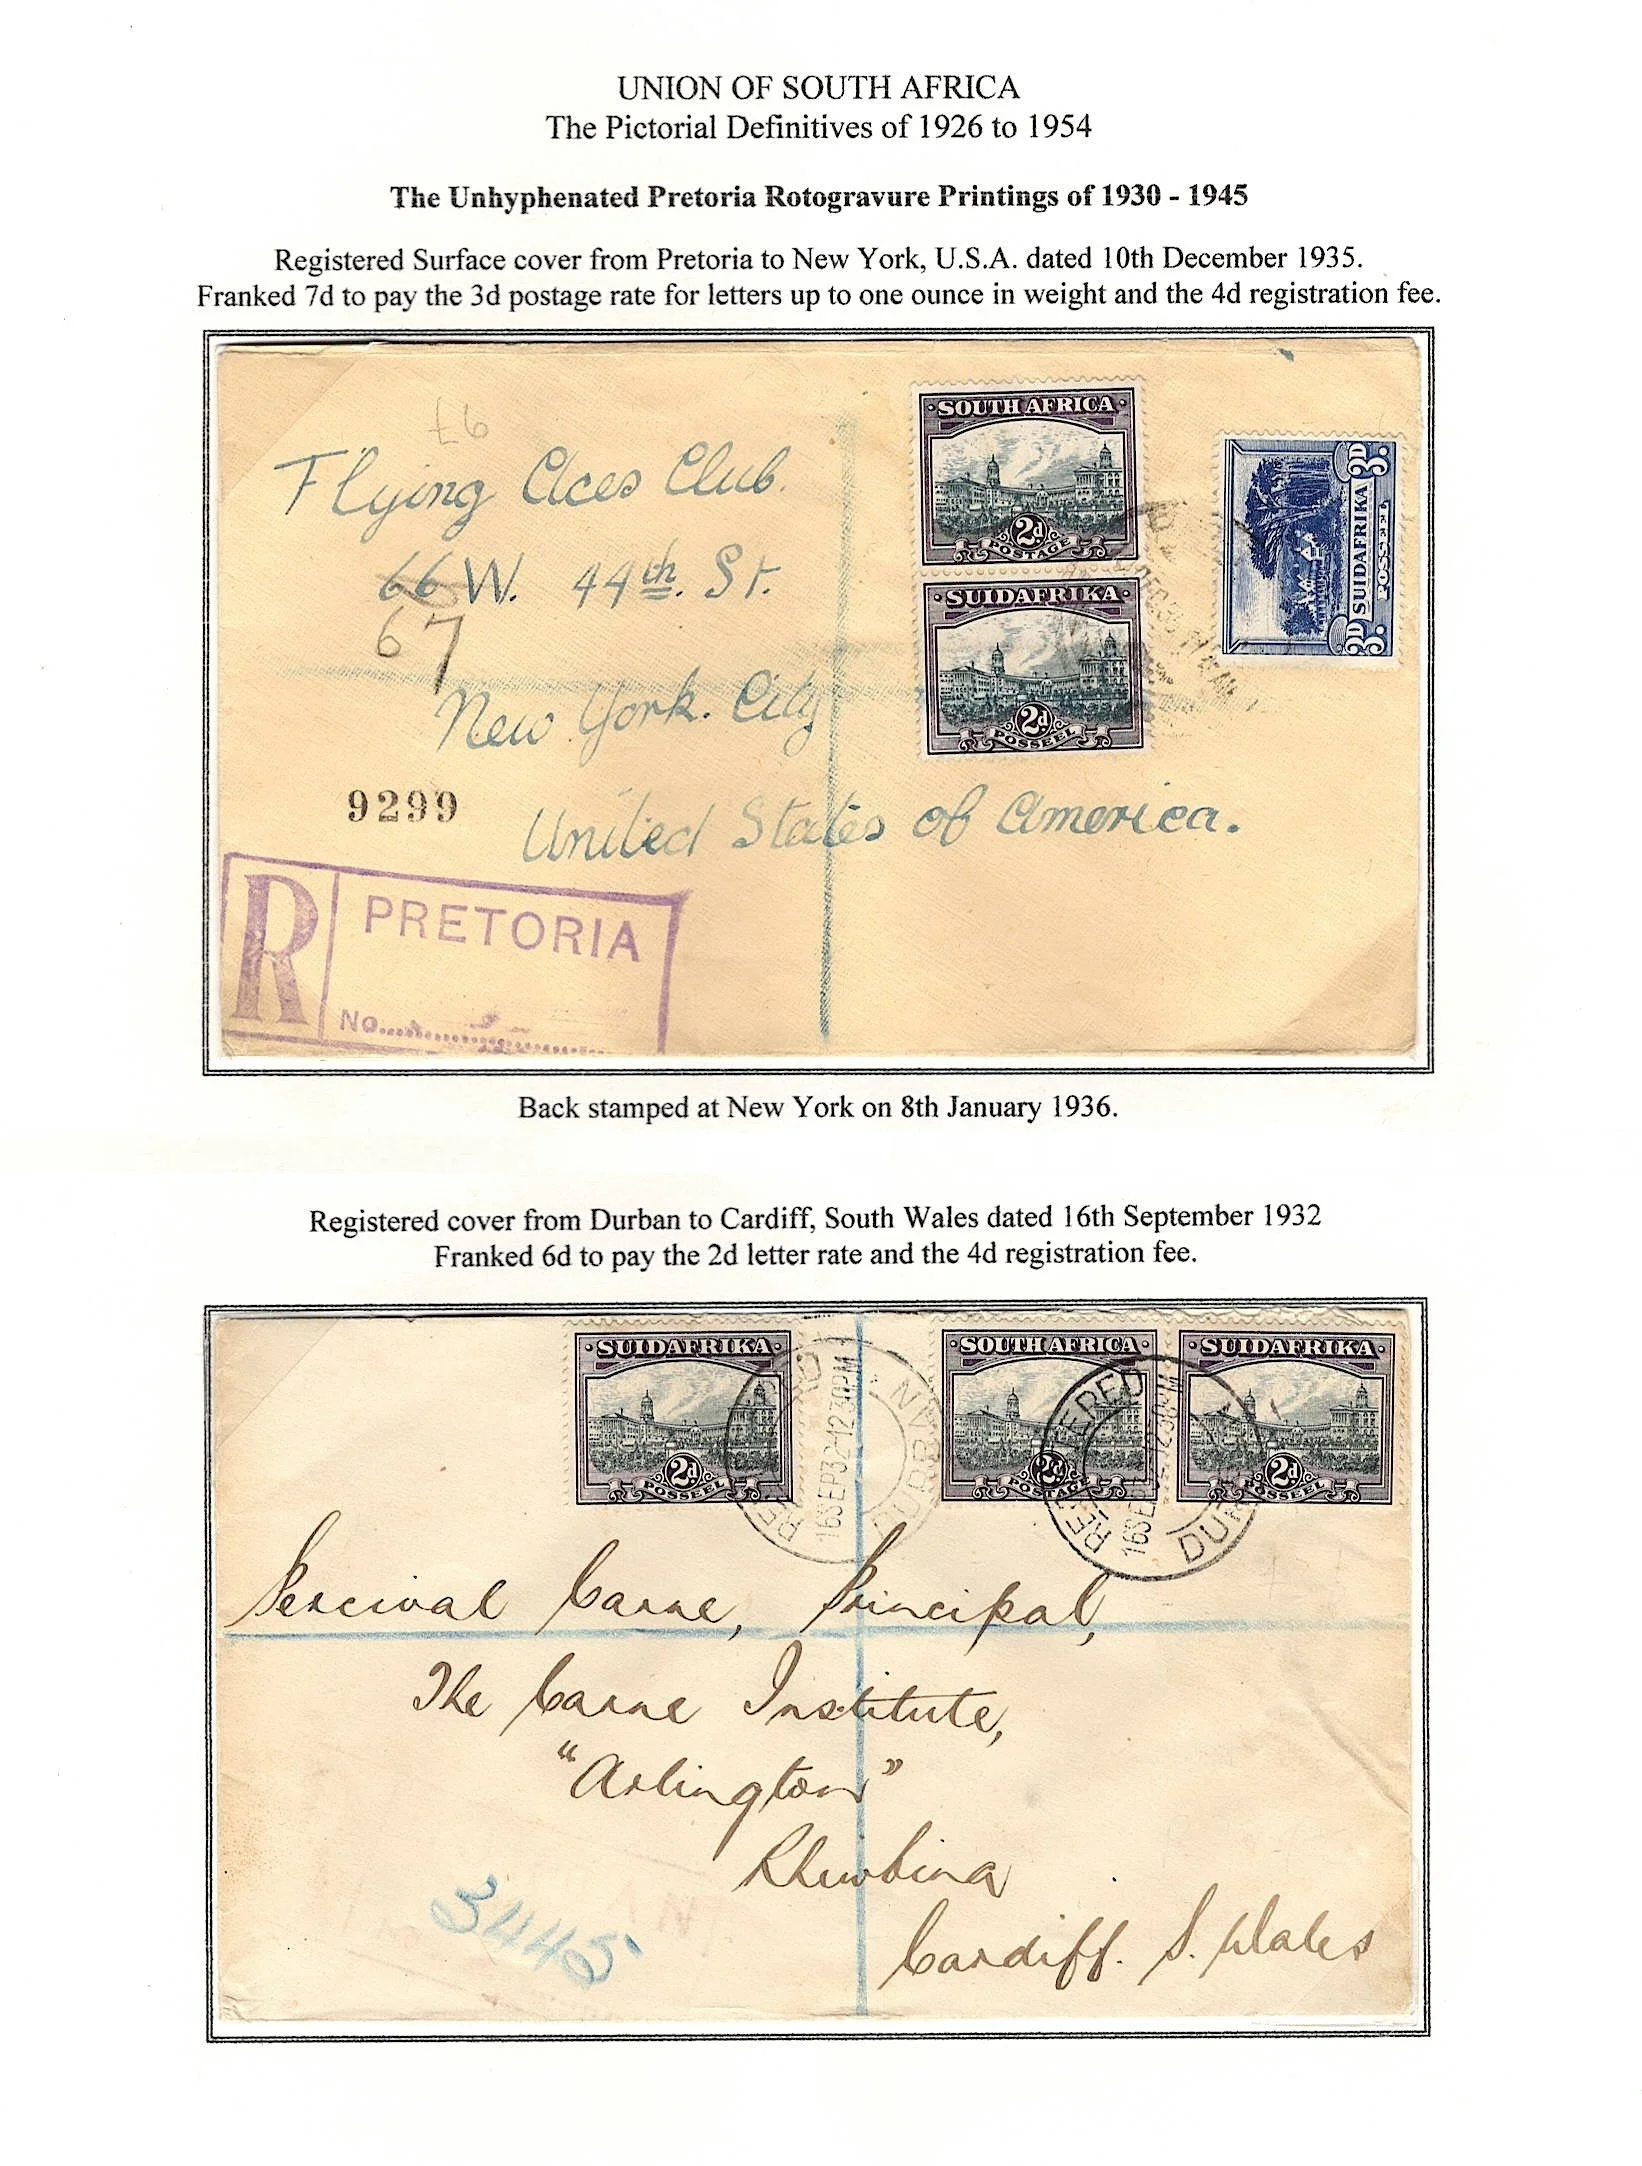 UNION OF SOUTH AFRICA
The Pictorial Definitives of 1926 to 1954
The Unhyphenated Pretoria Rotogravure Printings of 1930 - 1945
Registered Surface cover from Pretoria to New York, U.S.A. dated 10th December 1935.
Franked 7d to pay the 3d postage rate for letters up to one ounce in weight and the 4d registration fee.
Flying Aces Club.
66 W. 44th. St.
67
New York. City
United States of America.
9299
R PRETORIA
No.
·SOUTH AFRICA·
2d
POSTAGE
·SUIDAFRIKA·
2d
POSSEEL
3D SUIDAFRIKA 3D
3. POSSEEL 3.
Back stamped at New York on 8th January 1936.
Registered cover from Durban to Cardiff, South Wales dated 16th September 1932
Franked 6d to pay the 2d letter rate and the 4d registration fee.
·SUIDAFRIKA·
2d
POSSEEL
·SOUTH AFRICA·
2d
POSTAGE
·SUIDAFRIKA·
2d
POSSEEL
16SEP32-12 30PM
DURBAN
Percival Carne, Principal,
The Carne Institute,
"Arlington"
Rhiwbina
Cardiff. S. Wales
34445